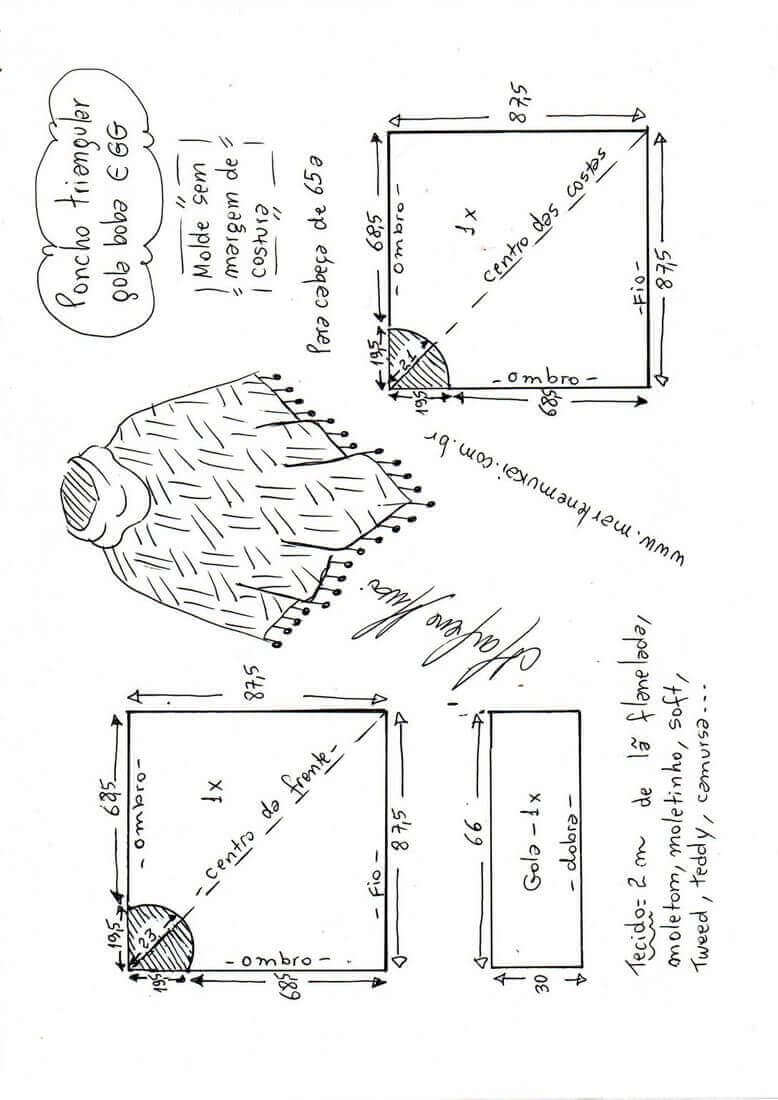 Poncho triangular
gola boba EGG
Molde sem
margem de
costura
Para cabeça de 65a
19,5
68,5
- ombro -
23
1x
87,5
- centro da frente -
195
68,5
- ombro -
- Fio -
87,5
19,5
68,5
- ombro -
21
1x
87,5
centro das costas
195
68,5
- ombro -
- Fio -
87,5
66
Gola - 1x
- dobra -
30
Marlene Mukai
www.marlenemukai.com.br
Tecido = 2 m de lã flanelada,
moletom, moletinho, soft,
Tweed, teddy, camursa...